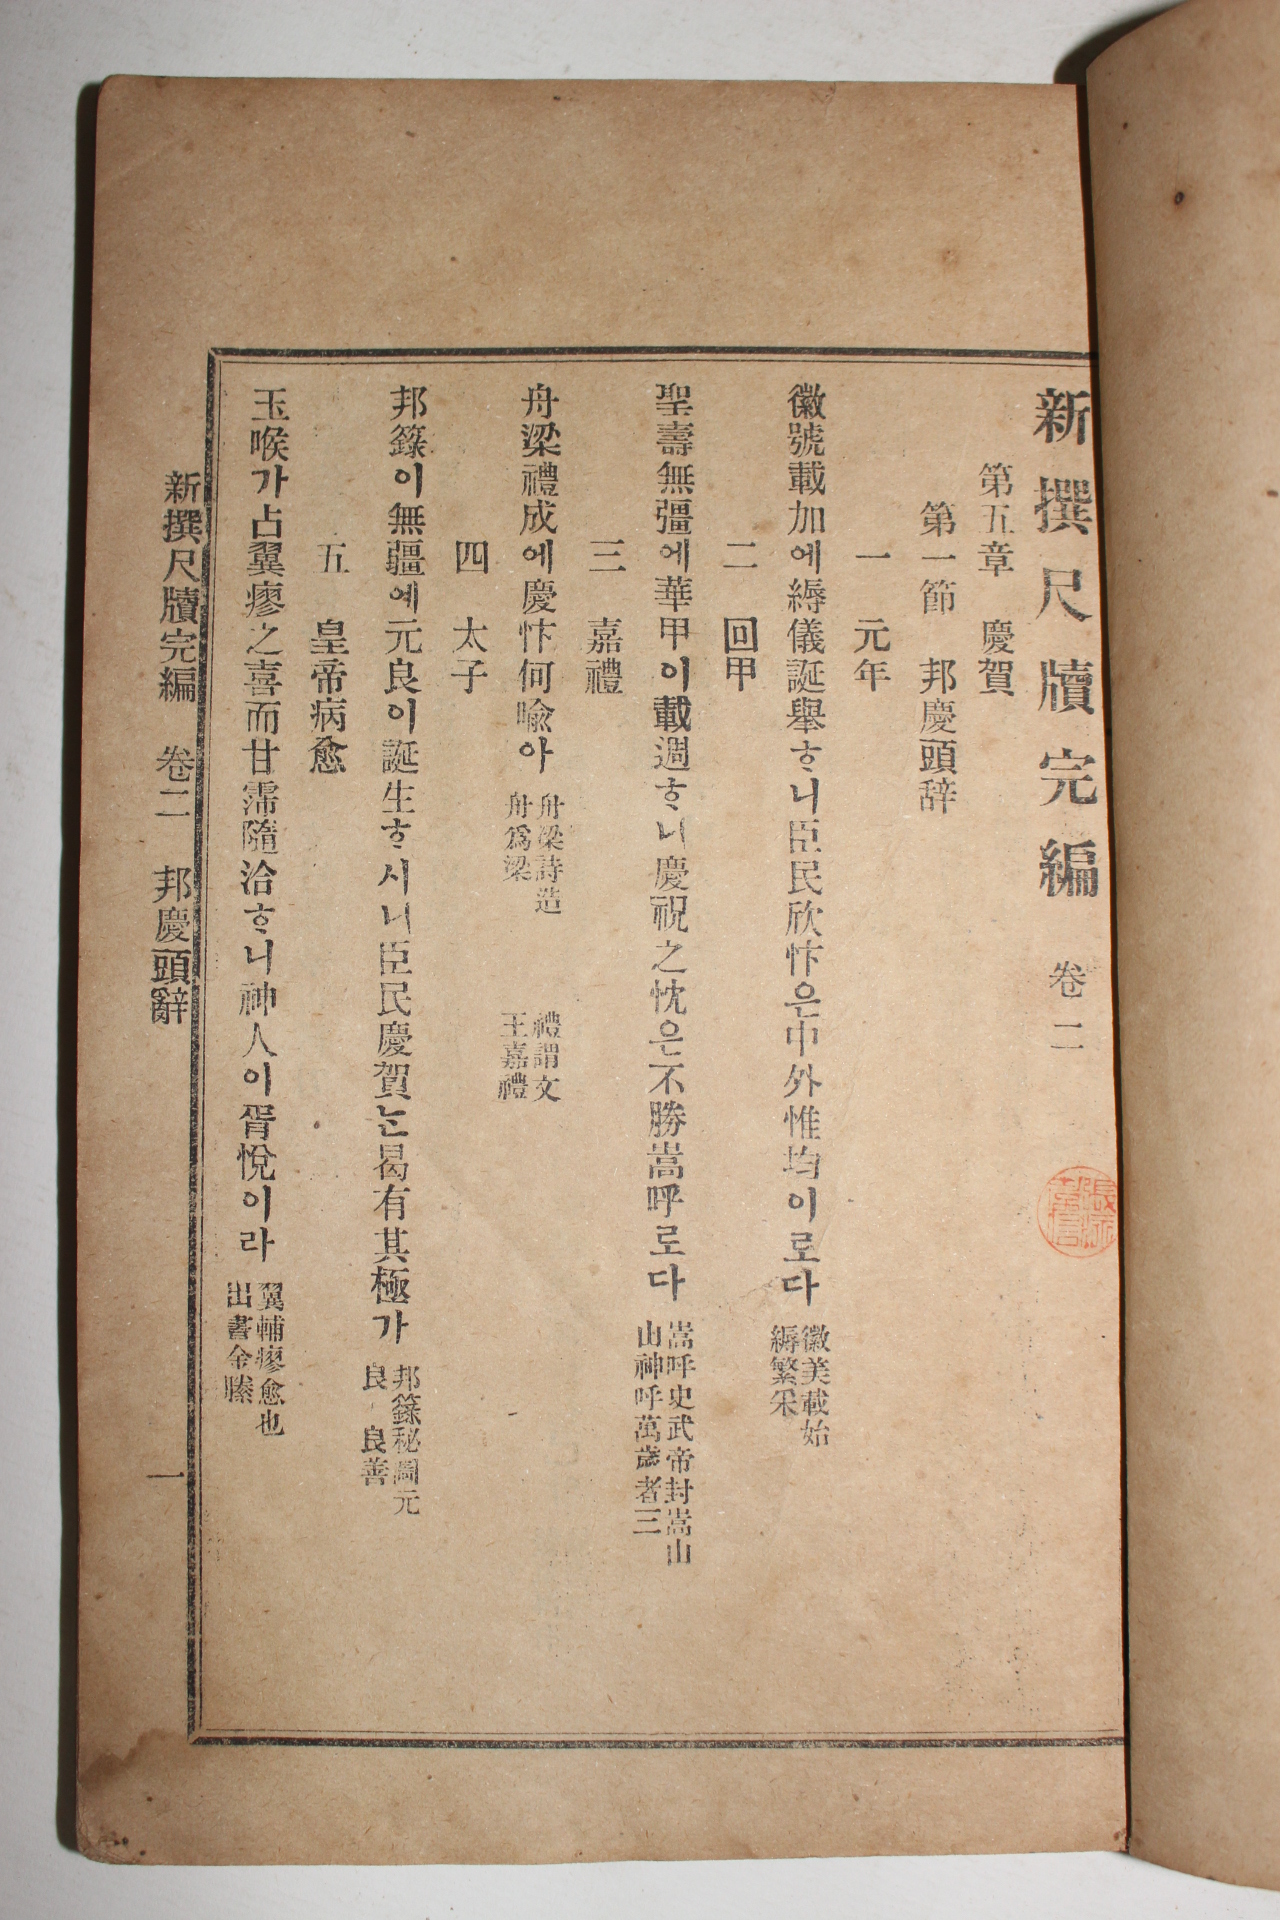 新撰尺牘完編 卷二
第五章 慶賀
第一節 邦慶頭辞
一 元年
徽號載加에縟儀誕擧ᄒᆞ니臣民欣忭은中外惟均이로다 徽美載始
縟繁采
二 回甲
聖壽無彊에華甲이載週ᄒᆞ니慶祝之忱은不勝嵩呼로다 嵩呼史武帝封嵩山
山神呼萬歲者三
三 嘉禮
舟梁禮成에慶忭何喩아 舟梁詩造
舟爲梁
禮謂文
王嘉禮
四 太子
邦籙이無疆에元良이誕生ᄒᆞ시니臣民慶賀ᄂᆞᆫ曷有其極가 邦籙秘圖元
良 良善
五 皇帝病愈
玉喉가占翼瘳之喜而甘霈隨洽ᄒᆞ니神人이胥悅이라 翼輔瘳愈也
出書金縢
新撰尺牘完編 卷二 邦慶頭辭 一